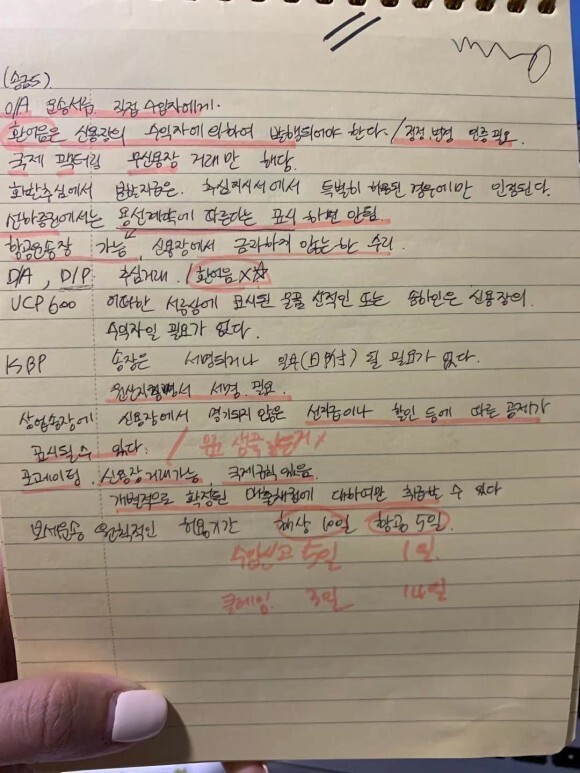 (송금S).
O/A 운송서류 직접 수입자에게.
환어음은 신용장의 수익자에 의하여 발행되어야 한다. / 정정.변경 인증 필요.
국제 팩터링 무신용장 거래만 해당.
화환추심에서 분할지급은. 추심지시서에서 특별히 허용된 경우에만 인정된다.
선하증권에서는 용선계약에 따른다는 표시 하면 안됨.
항공운송장 가능, 신용장에서 금지하지 않는한 수리.
D/A, D/P 추심거래. / 환어음 X☆
UCP 600 어떠한 서류상에 표시된 물품 선적인 또는 송하인은 신용장의.
수익자일 필요가 없다.
송장은 서명되거나 일부(日附)될 필요가 없다.
원산지증명서 서명. 필요.
상업송장에 신용장에서 명기되지 않은 선지급이나 할인 등에 따른 공제가
표시될 수 있다. / 무료 샘플 X
포페이팅. 신용장거래가능, 국제규칙 있음.
개별적으로 확정된 매출채권에 대하여만 취급할 수 있다
보세운송 원칙적인 허용기간 해상 10일 항공 5일.
수입신고 5일 1일.
클레임. 3일 14일